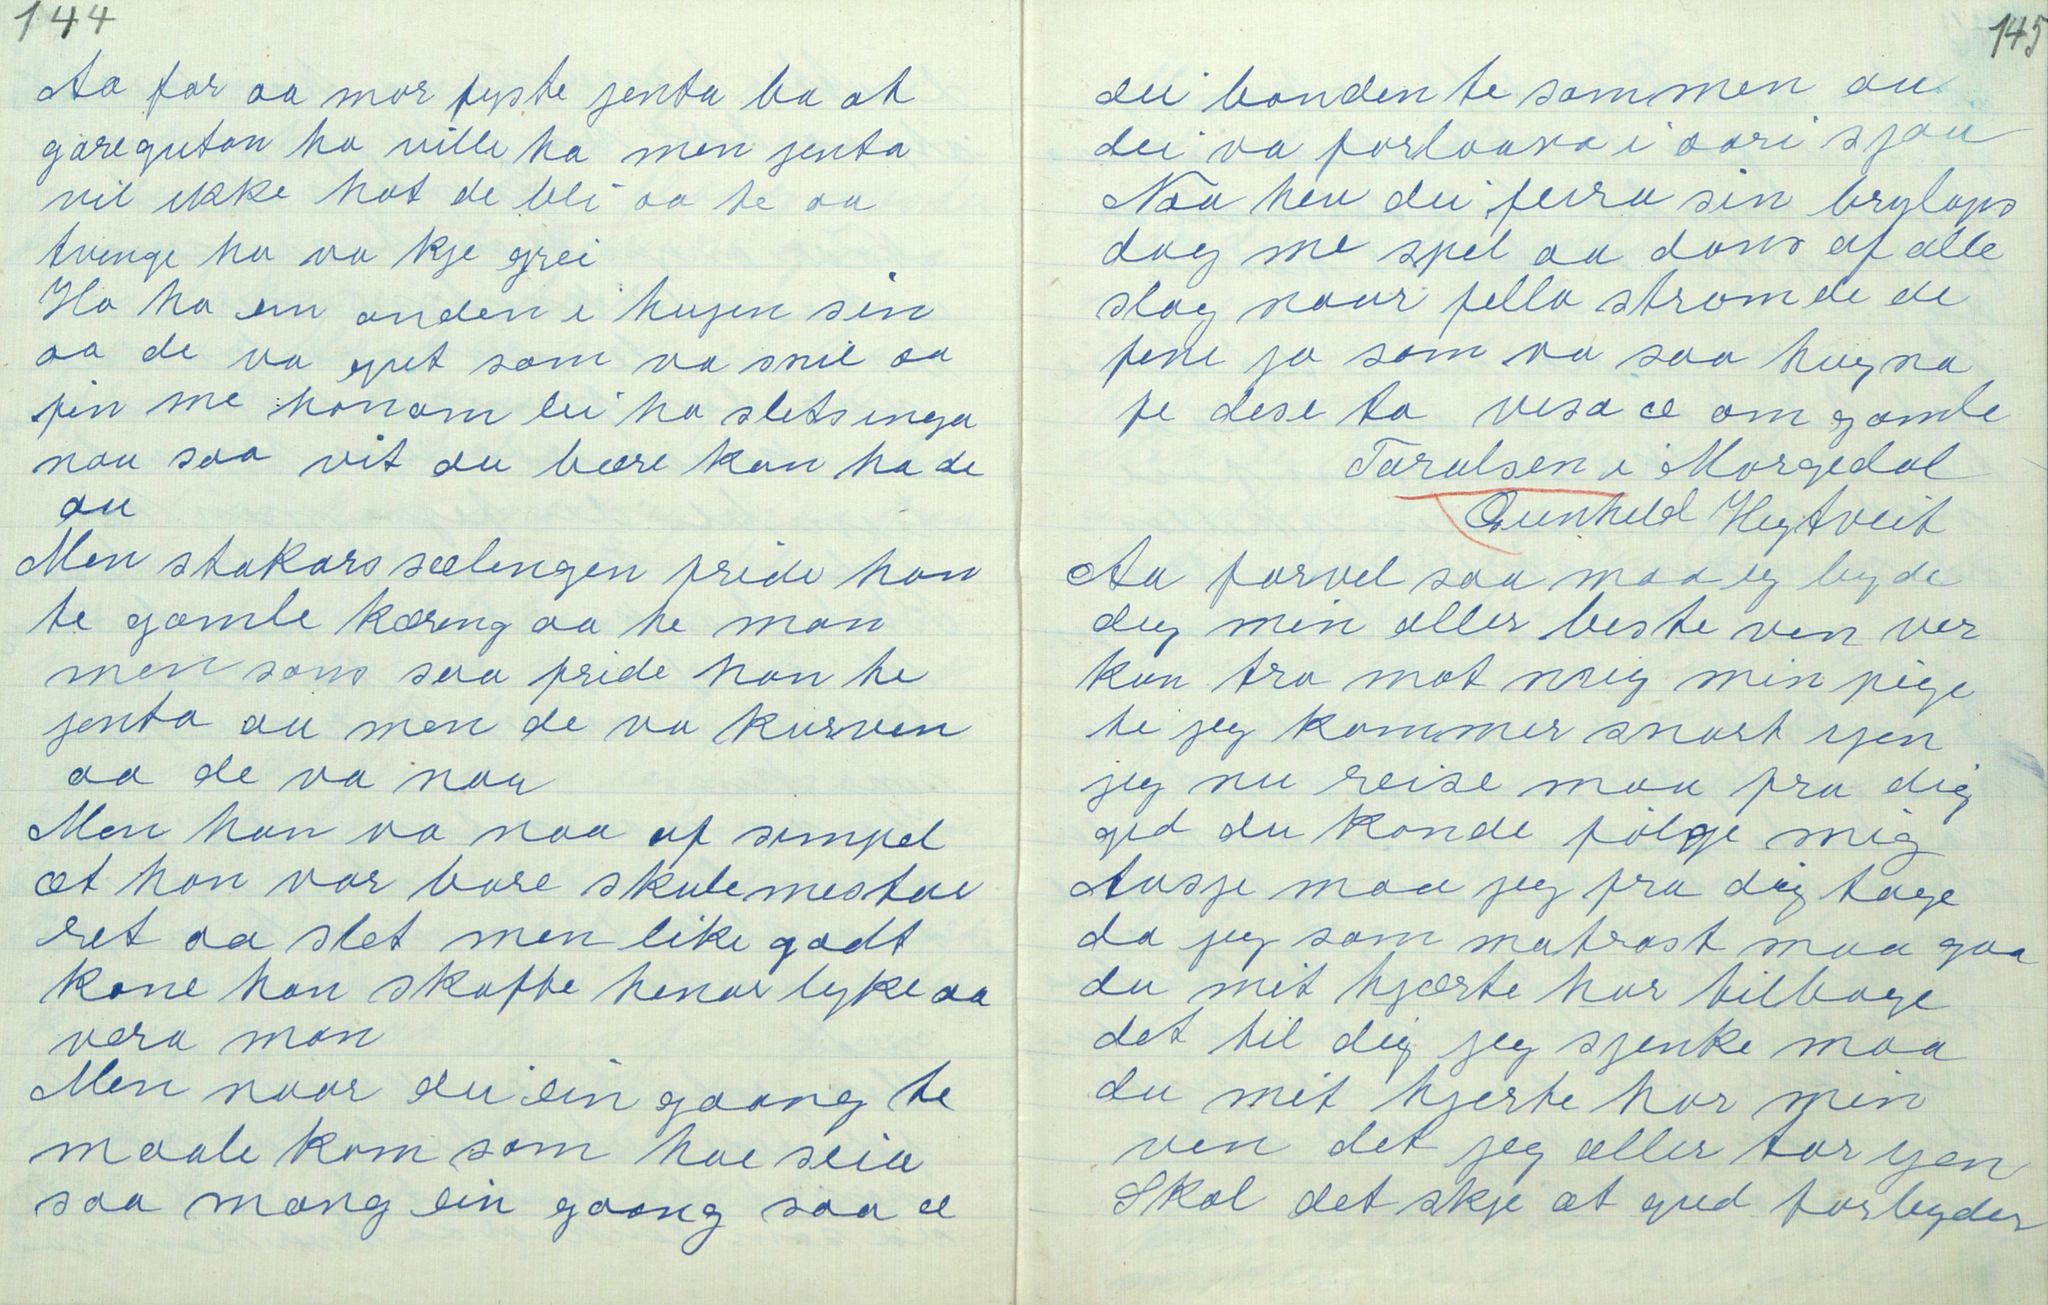 144
Aa far aa mor fyste jenta ba at
garegutan ha ville ha men jenta
vil ikke hat de bli aa te aa
tvinge ha va kje grei
Ho ha en anden i hugen sin
aa de va gut som va snil aa
fin me honom lei ha slets inga
naa saa vit du bære kan ha de
au
Men stakars sælengen fride han
te gamle kæring aa te man
men sans saa fride han te
jenta au men de va kurven
aa de va naa
Men han va naa af simpel
æt han var bare skulemestar
ret aa slet men like godt
kone han skaffte henar lyke aa
vera man
Men naar dei ein gaang te
maale kom som hae seia
saa mang ein gaang saa æ
145
dei bonden te sammen au
dei va forlaava i aari sjau
Naa heu dei feira sin brylaps
dag me spel aa dans af alle
slag naar fella strømde de
fene ja som va saa hugna
fe dese ta visa æ om gamle
Taralsen i Morgedal
Gunhild Hegtveit
Aa farvel saa maa eg byde
deg min aller beste ven ver
kun tro mot mig min pige
te jeg kommer snart igen
jeg nu reise maa fra dig
gid du konde følgje mig
Avsje maa jeg fra dig tage
da jeg som matrost maa gaa
du mit hjærte har tilbage
det til dig jeg sjenke maa
du mit hjerte har min
ven det jeg aller tar igen
Skal det skje at gud forbyder